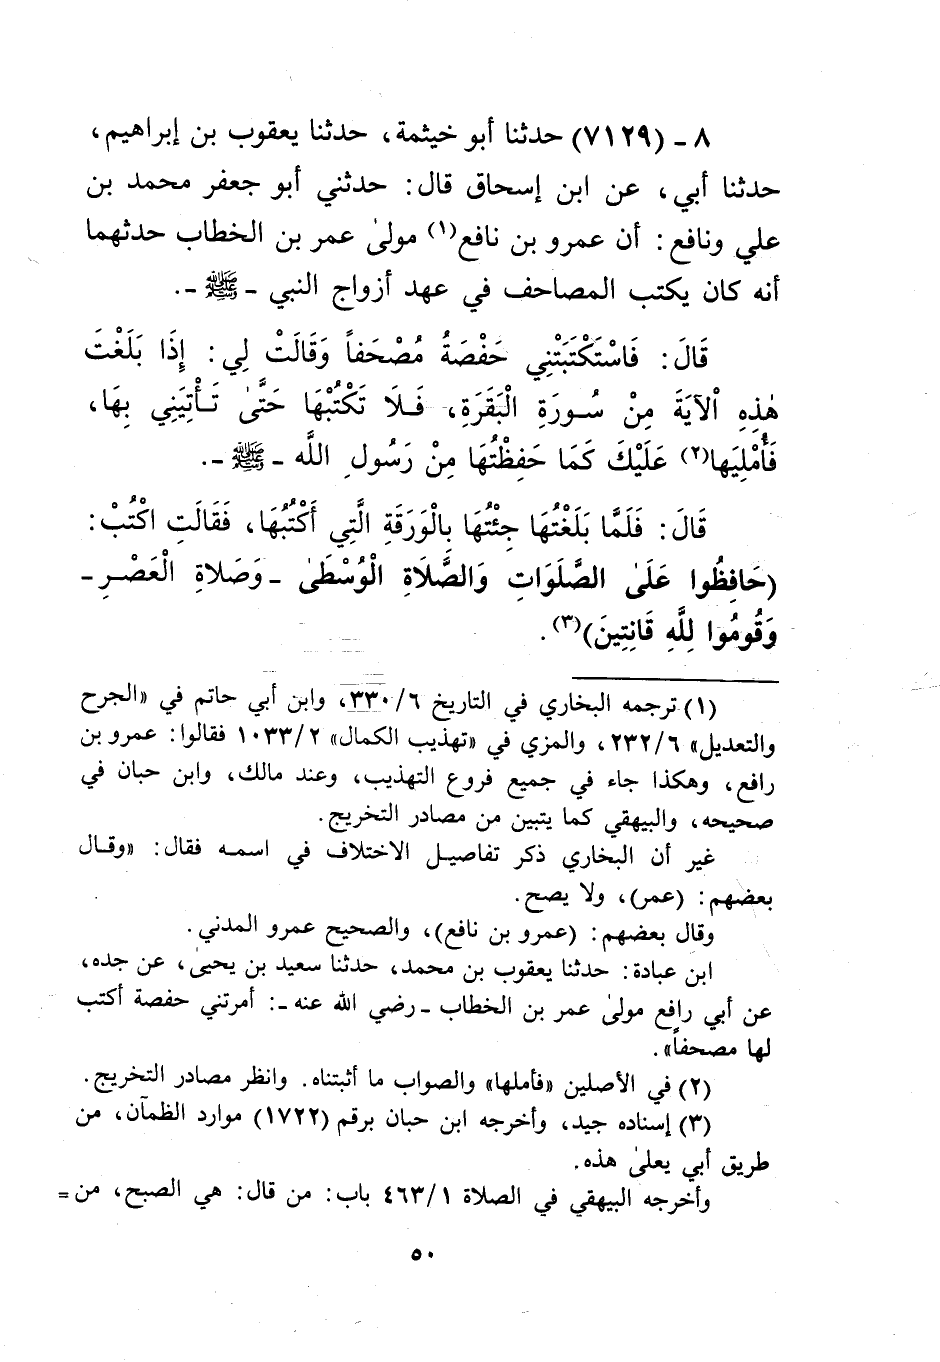 ٨ ـ (٧١٢٩) حدثنا أبو خيثمة، حدثنا يعقوب بن إبراهيم،
حدثنا أبي، عن ابن إسحاق قال: حدثني أبو جعفر محمد بن
علي ونافع: أن عمرو بن نافع(١) مولىٰ عمر بن الخطاب حدثهما
أنه كان يكتب المصاحف في عهد أزواج النبي ـ ﷺ ـ.
قَالَ: فَاسْتَكْتَبَتْنِي حَفْصَةُ مُصْحَفاً وَقَالَتْ لِي: إِذَا بَلَغْتَ
هٰذِهِ الْآيَةَ مِنْ سُورَةِ الْبَقَرَةِ، فَلَا تَكْتُبْهَا حَتَّىٰ تَأْتِيَنِي بِهَا،
فَأُمْلِيَها(٢) عَلَيْكَ كَمَا حَفِظْتُهَا مِنْ رَسُولِ اللَّه ـ ﷺ ـ.
قَالَ: فَلَمَّا بَلَغْتُهَا جِئْتُهَا بِالْوَرَقَةِ الَّتِي أَكْتُبُهَا، فَقَالَتِ اكْتُبْ:
(حَافِظُوا عَلَىٰ الصَّلَوَاتِ وَالصَّلَاةِ الْوُسْطَىٰ ـ وَصَلَاةِ الْعَصْرِ ـ
وَقُومُوا لِلَّهِ قَانِتِينَ)(٣).
(١) ترجمه البخاري في التاريخ ٦/٣٣٠، وابن أبي حاتم في «الجرح
والتعديل» ٦/٢٣٢، والمزي في «تهذيب الكمال» ٢/١٠٣٣ فقالوا: عمرو بن
رافع، وهكذا جاء في جميع فروع التهذيب، وعند مالك، وابن حبان في
صحيحه، والبيهقي كما يتبين من مصادر التخريج.
غير أن البخاري ذكر تفاصيل الاختلاف في اسمه فقال: «وقال
بعضهم: (عمر)، ولا يصح.
وقال بعضهم: (عمرو بن نافع)، والصحيح عمرو المدني.
ابن عبادة: حدثنا يعقوب بن محمد، حدثنا سعيد بن يحيىٰ، عن جده،
عن أبي رافع مولىٰ عمر بن الخطاب ـ رضي الله عنه ـ: أمرتني حفصة أكتب
لها مصحفاً».
(٢) في الأصلين «فأملها» والصواب ما أثبتناه. وانظر مصادر التخريج.
(٣) إسناده جيد، وأخرجه ابن حبان برقم (١٧٢٢) موارد الظمآن، من
طريق أبي يعلىٰ هذه.
وأخرجه البيهقي في الصلاة ١/٤٦٣ باب: من قال: هي الصبح، من =
٥٠